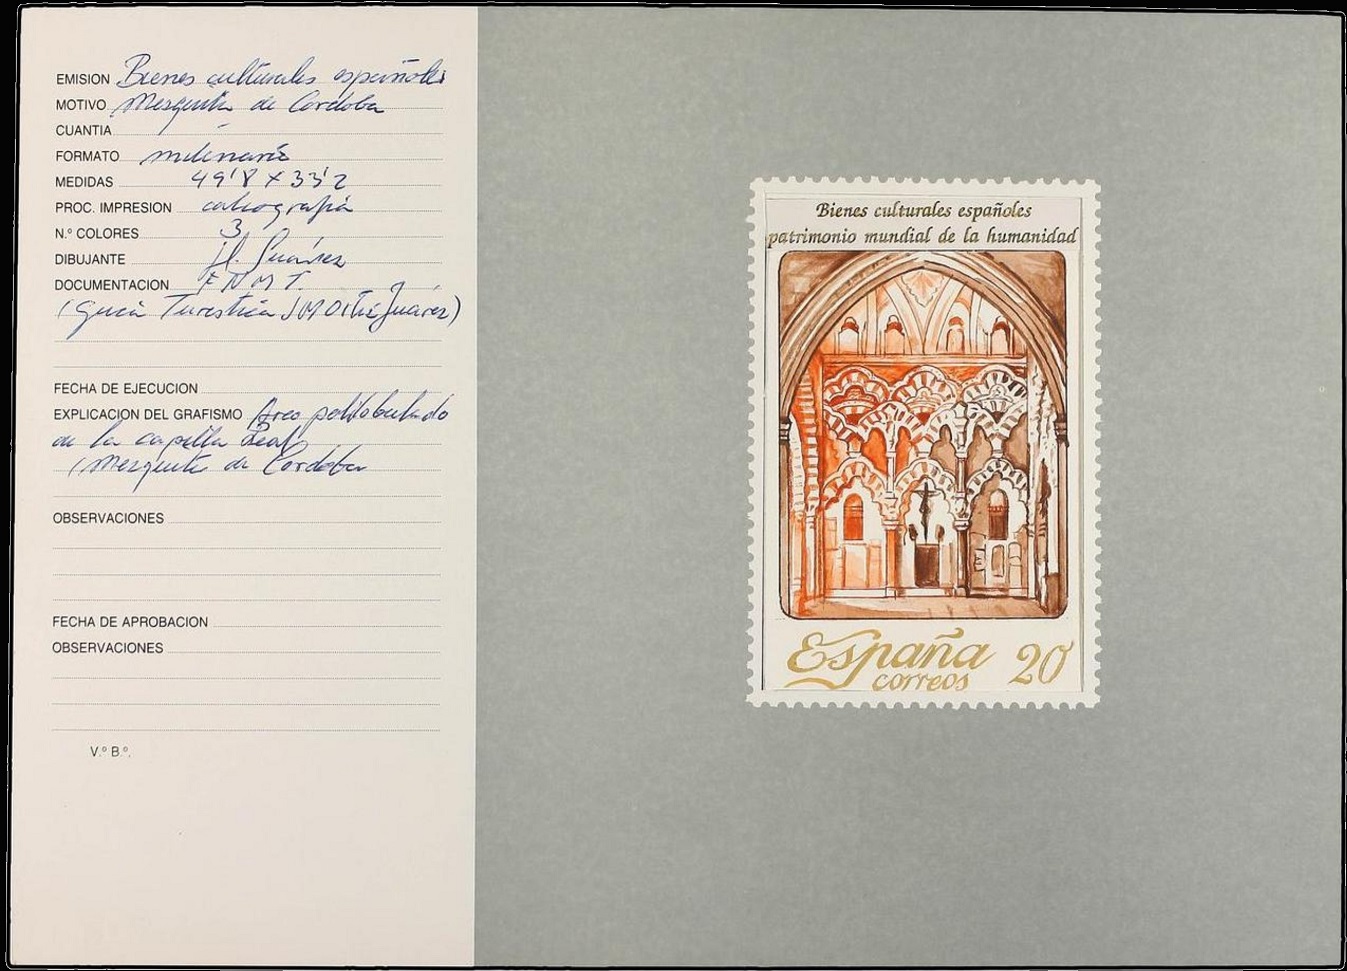 EMISION Bienes culturales españoles
MOTIVO Mezquita de Cordoba
CUANTIA
FORMATO milenario
MEDIDAS 49'8 x 33'2
PROC. IMPRESION calcografia
N.º COLORES 3
DIBUJANTE Suárez
DOCUMENTACION F N M T.
(Guia Turistica Juarez)
FECHA DE EJECUCION
EXPLICACION DEL GRAFISMO Arco polilobulado
en la capilla Real
(Mezquita de Cordoba
OBSERVACIONES
FECHA DE APROBACION
OBSERVACIONES
V.º B.º.
Bienes culturales españoles
patrimonio mundial de la humanidad
España 20
correos